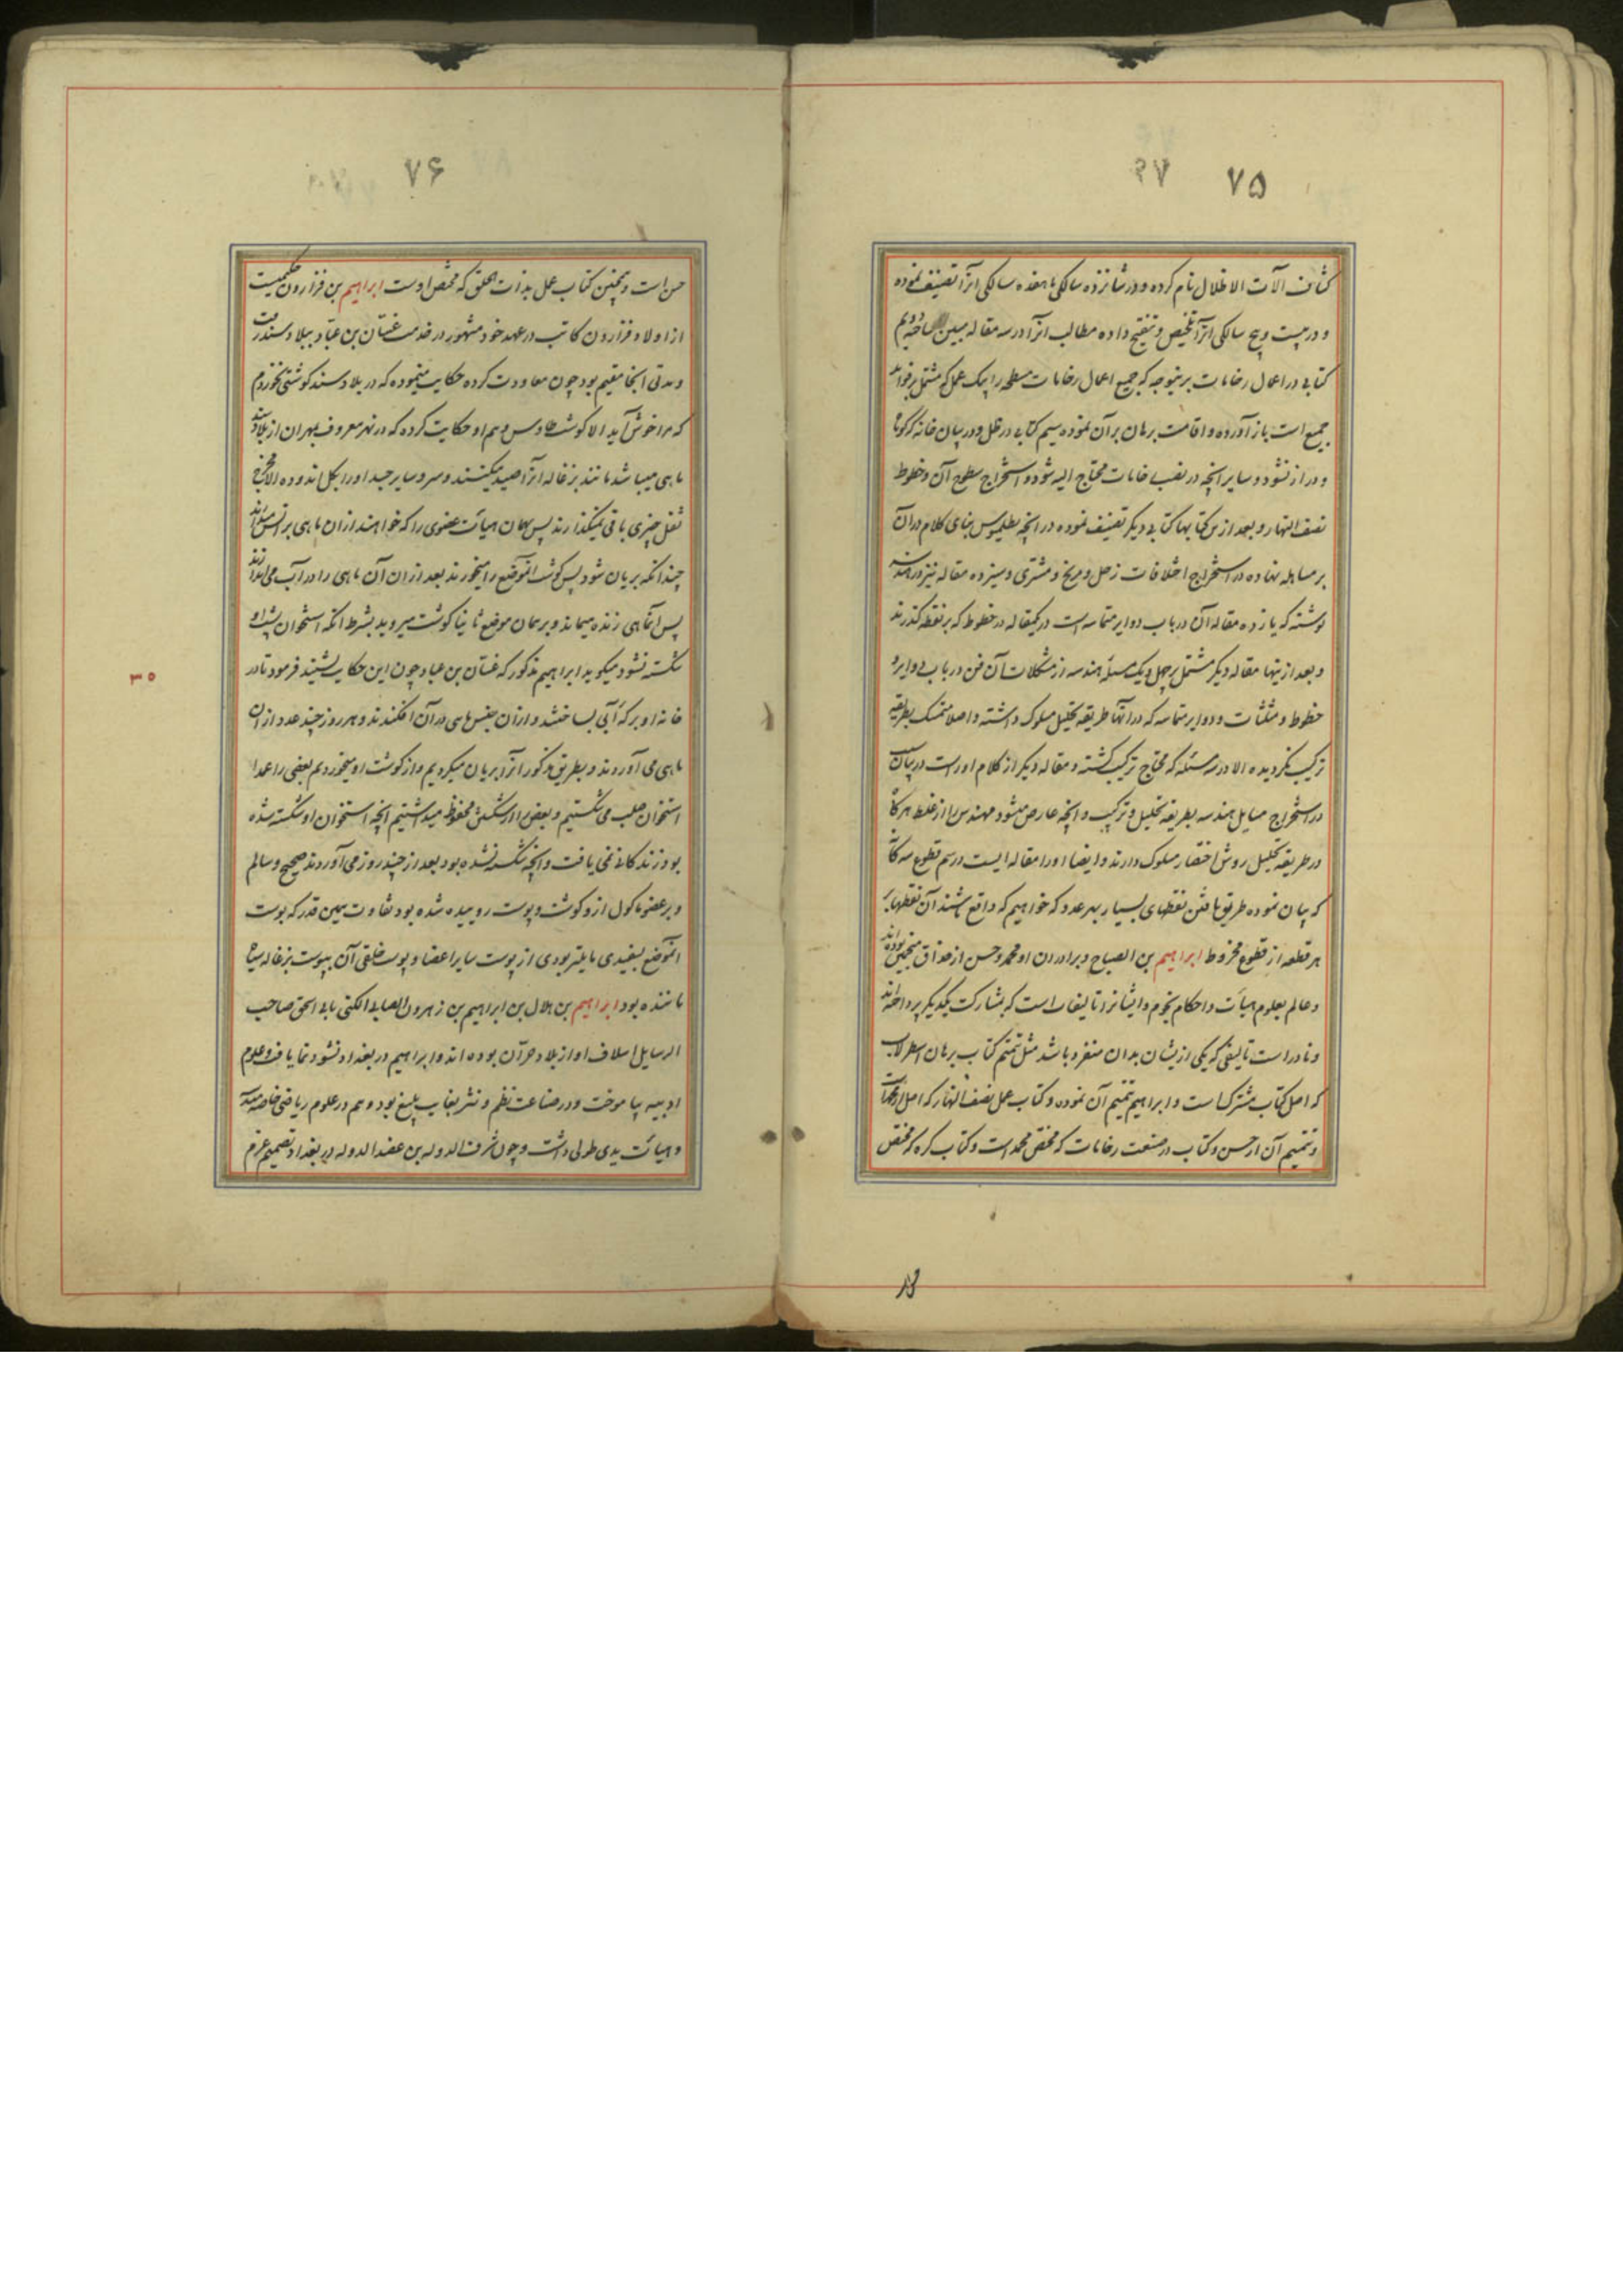 ۷۵
۷۶
کتاب آلات الاظلال نام کرده و در شانزده سالگی یا هفده سالگی آنرا تصنیف نموده
و در بیست و پنج سالگی آنرا تلخیص و تنقیح داده مطالب آنرا در سه مقاله مبین ساخته دویم
کتابی در اعمال رخامات بر ینوجه که جمیع اعمال رخامات مسطحه را بیک عمل که مشتمل بر فواید
جمیع است باز آورده و اقامت برهان بر آن نموده سیم کتابی در ظل و در بیان خانه که کوتاه
و دراز نشود و سایر آنچه در نصب خامات محتاج الیه شود و استخراج سطوح آن و خطوط
نصف النهار و بعد ازین کتابها کتابی دیگر تصنیف نموده در آنچه بطلمیوس بنای کلام در آن
بر مساهله نهاده در استخراج اختلافات زحل و مریخ و مشتری و سیزده مقاله نیز در هندسه
نوشته که یازده مقاله آن در باب دوایر متماسه است در یکمقاله در خطوط که بر نقطه گذرند
و بعد ازینها مقاله دیگر مشتمل بر چهل و یک مسئله هندسه از مشکلات آن فن در باب دوایر و
خطوط و مثلثات و دوایر متماسه که در آنها طریقه تحلیل مسلوک داشته و اصلا متمسک بطریقه
ترکیب نگردیده الا در سه مسئله که محتاج ترکیب گشته و مقاله دیگر از کلام او راست در بیان
در استخراج مسایل هندسه بطریقه تحلیل و ترکیب و آنچه عارض میشود مهندس را از غلط هرگاه
در طریقه تحلیل روش اختصار مسلوک دارند و ایضا او را مقاله ایست در رسم قطوع سه گانه
که بیان نموده طریق یافتن نقطهای بسیار بهر عدد که خواهیم که واقع باشند آن نقطها بر
هر قطعه از قطوع مخروط ابراهیم بن الصباح و برادران او محمد و حسن از حذاق منجمین بوده اند
و عالم بعلوم هیأت و احکام نجوم و ایشانرا تالیفات است که بمشارکت یکدیگر پرداخته اند
و نادر است تالیفی که یکی از یشان بدان منفرد باشد مثل تتمیم کتاب برهان اسطرلاب
که اصل کتاب مشترک است و ابراهیم تتمیم آن نموده و کتاب عمل نصف النهار که اصل از محمد است
و تتمیم آن از حسن و کتاب در صنعت رخامات که مختص محمد است و کتاب کره که مختص
حسن است و همچنین کتاب عمل بذات الحلق که مختص اوست ابراهیم بن فزارون حکیمیست
از اولاد فزارون کاتب در عهد خود مشهور در خدمت غسان بن عباد ببلاد سند رفت
و مدتی آنجا مقیم بود چون معاودت کرده حکایت مینموده که در بلاد سند گوشتی نخوردم
که مرا خوش آید الا گوشت طاوس و هم او حکایت کرده که در نهر معروف بمهران از بلاد سند
ماهی میباشد مانند بزغاله آنرا صید میکنند و سر و سایر جسد او را بگل اندوده الا مخرج
ثفل چیزی باقی نمیگذارند پس بهمان هیأت عضوی را که خواهند از ان ماهی بر آتش میدارند
چندانکه بریان شود پس گوشت آنموضع را میخورند بعد از ان آن ماهی را در آب می اندازند
پس آنماهی زنده میماند و بر همان موضع ثانیا گوشت میروید بشرط آنکه استخوان پشت او
شکسته نشود میگوید ابراهیم مذکور که غسان بن عباد چون این حکایت بشنید فرمود تا در
خانه او برکه آبی بساختند و از ان جنس ماهی در آن افکندند و هر روز چند عدد از ان
ماهی می آوردند و بطریق مذکور آنرا بریان میکردیم و از گوشت او میخوردیم بعضی را عمدا
استخوان صلب می شکستیم و بعضی را از شکستن محفوظ میداشتیم آنچه استخوان او شکسته شده
بود زندگانی نمی یافت و آنچه شکسته نشده بود بعد از چند روز می آوردند صحیح و سالم
و بر عضو ماکول ازو گوشت و پوست روییده شده بود تفاوت همین قدر که پوست
آنموضع بسفیدی مایلتر بودی از پوست سایر اعضا و پوست خلقی آن بپوست بزغاله سیاه
ماننده بود ابراهیم بن هلال بن ابراهیم بن زهرون الصابی المکنی بابی اسحق صاحب
الرسایل اسلاف او از بلاد حران بوده اند و ابراهیم در بغداد نشو و نما یافت و علوم
ادبیه بیاموخت و در صناعت نظم و نثر بغایت بلیغ بود و هم در علوم ریاضی خاصه هندسه
و هیأت یدی طولی داشت و چون شرف الدوله بن عضد الدوله در بغداد تصمیم عزم
۳۵